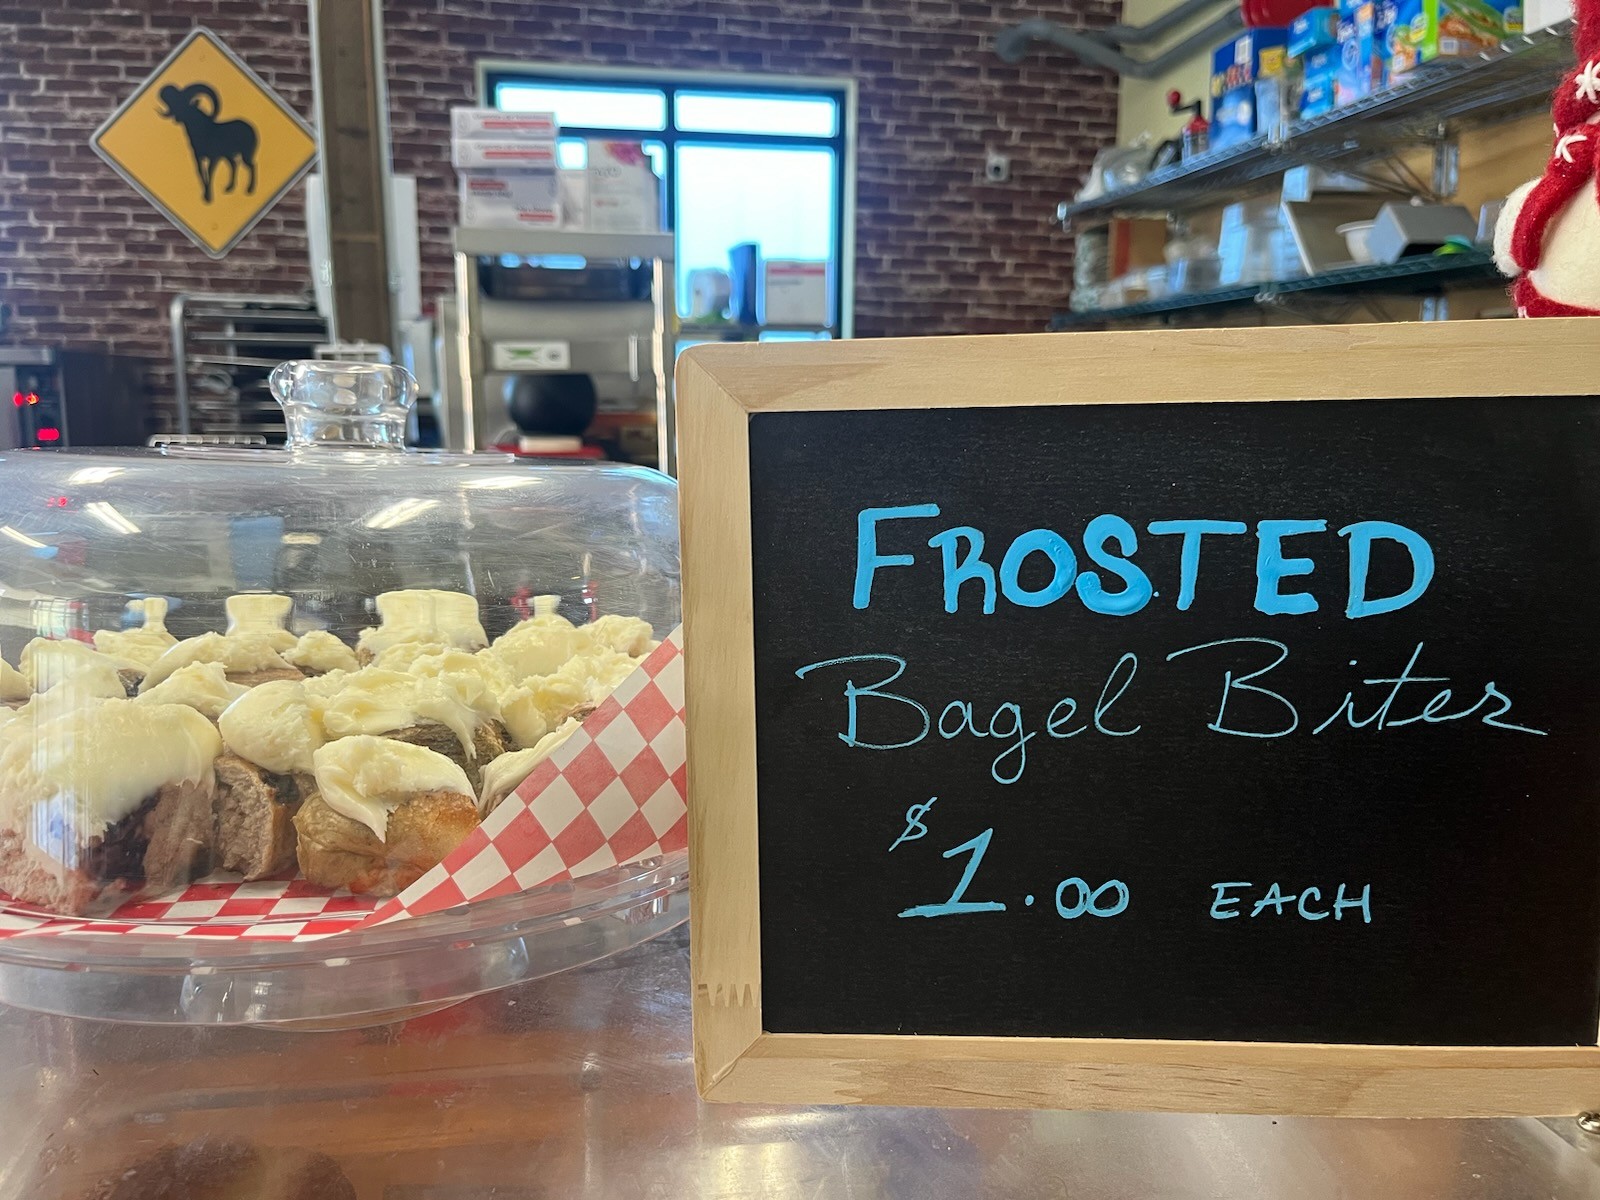 FROSTED
Bagel Bites
$1.00 EACH